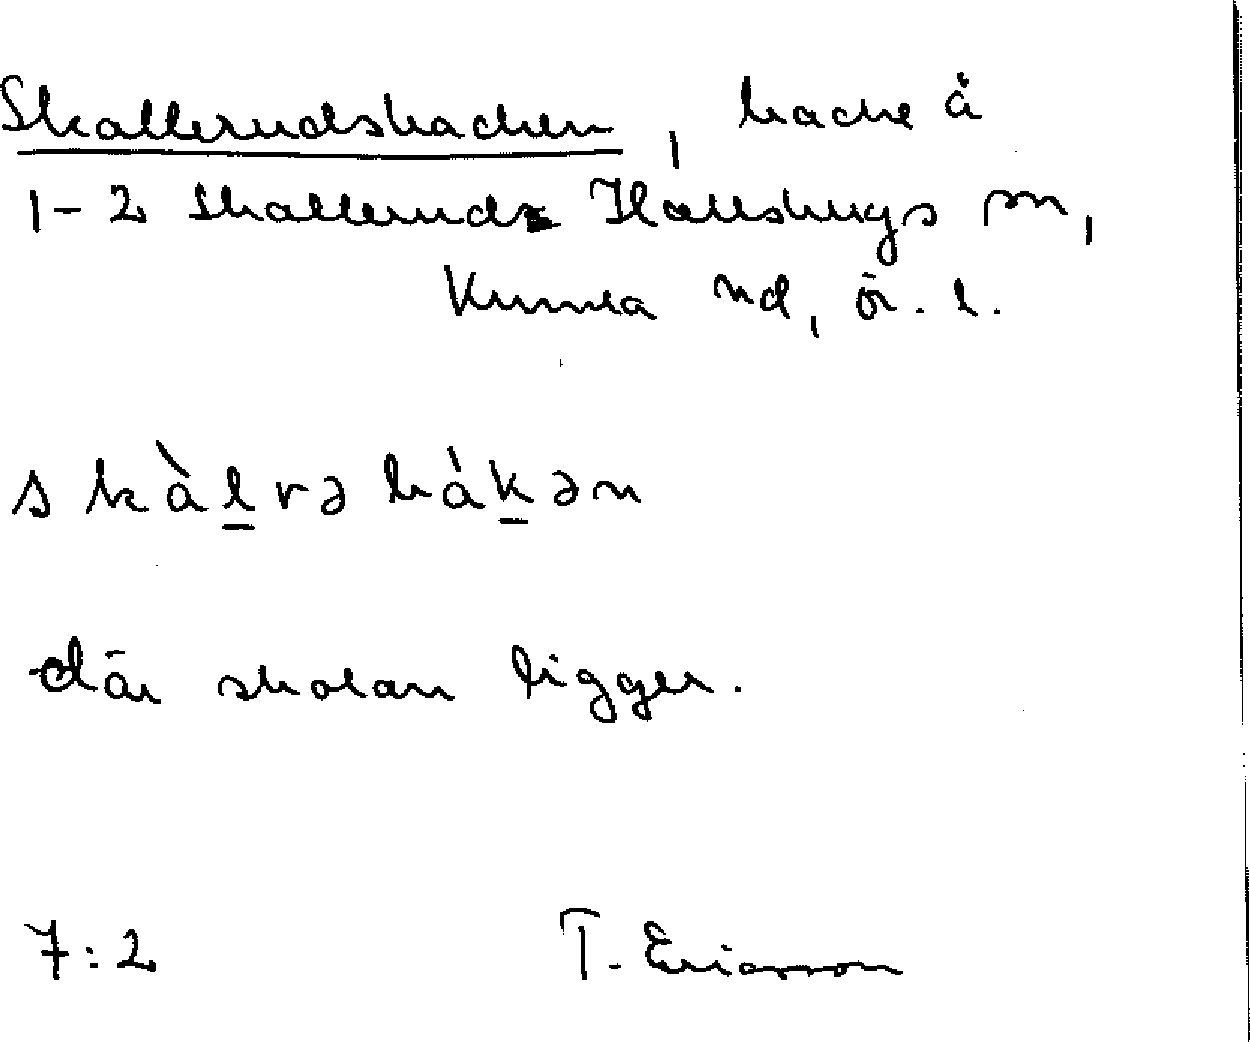 Skallerudsbacken, backe å
1-2 Skallerud Hallsbergs sn,
Kumla hd, Ör. l.
skàlrəbàkən
där skolan ligger.
7:2 T. Ericsson